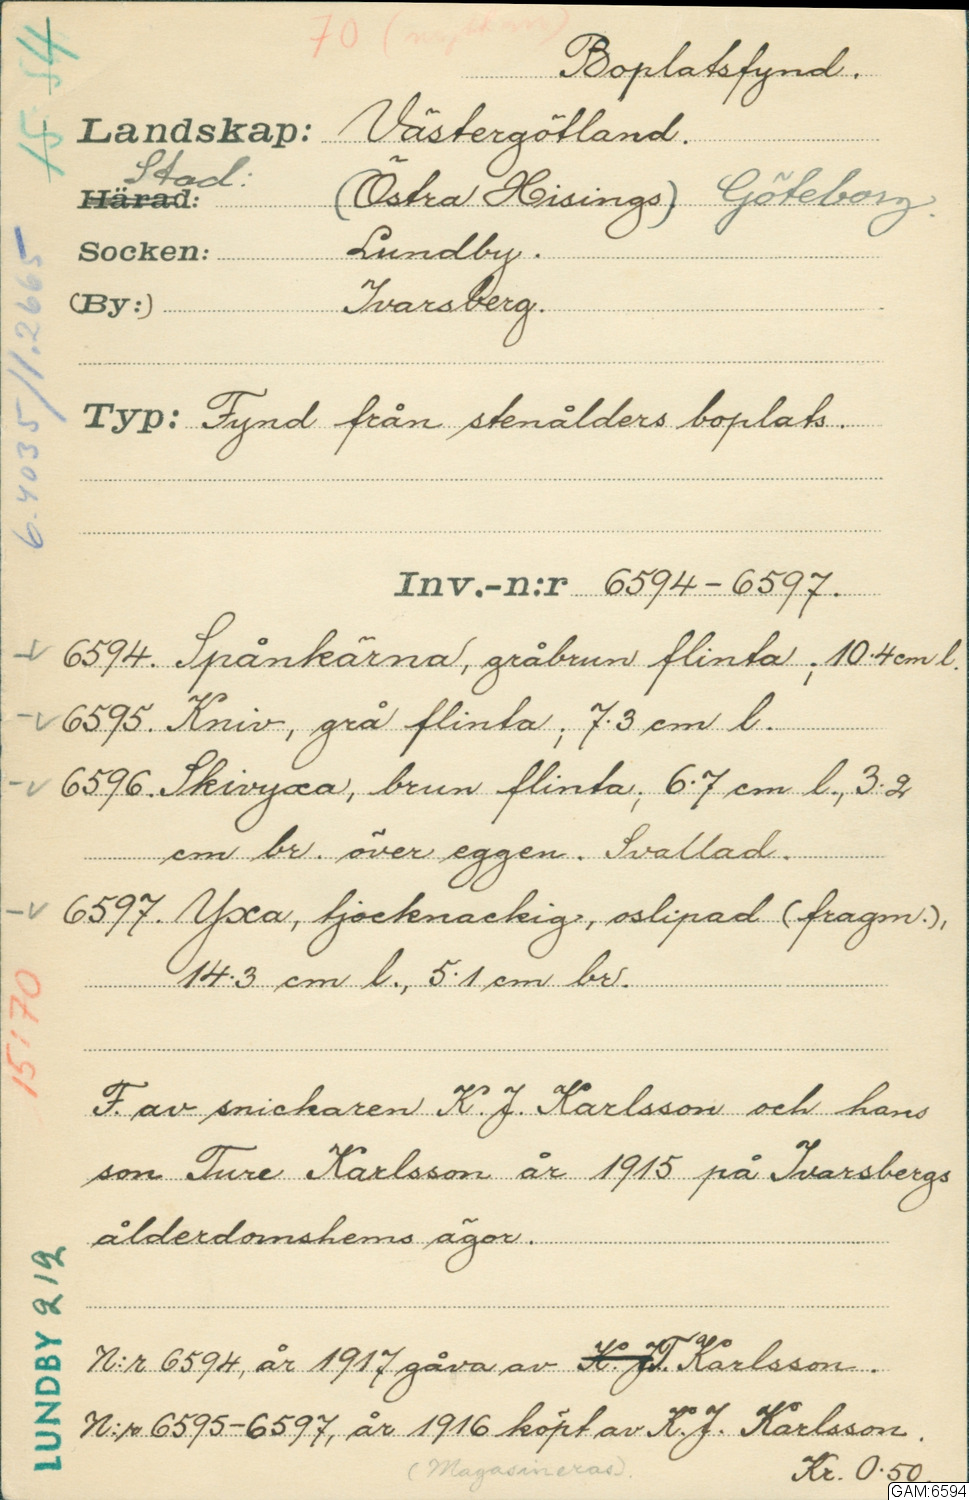 70 (
Boplatsfynd.
15 54
Landskap: Västergötland.
Stad:
Härad: (Östra Hisings) Göteborg.
Socken: Lundby.
(By:) Ivarsberg.
6.4035/1.2665
Typ: Fynd från stenålders boplats.
Inv.-n:r 6594-6597.
6594. Spånkärna, gråbrun flinta; 10.4 cm l.
6595. Kniv, grå flinta; 7.3 cm l.
6596. Skivyxa, brun flinta; 6.7 cm l., 3.2
cm br. över eggen. Svallad.
6597. Yxa, tjocknackig, oslipad (fragm.),
14.3 cm l., 5.1 cm br.
15:70
F. av snickaren K. J. Karlsson och hans
son Ture Karlsson år 1915 på Ivarsbergs
ålderdomshems ägor.
LUNDBY 212
N:r 6594, år 1917 gåva av K. J. T. Karlsson.
N:r 6595-6597, år 1916 köpt av K. J. Karlsson.
(Magasineras).
Kr. 0.50.
GAM:6594